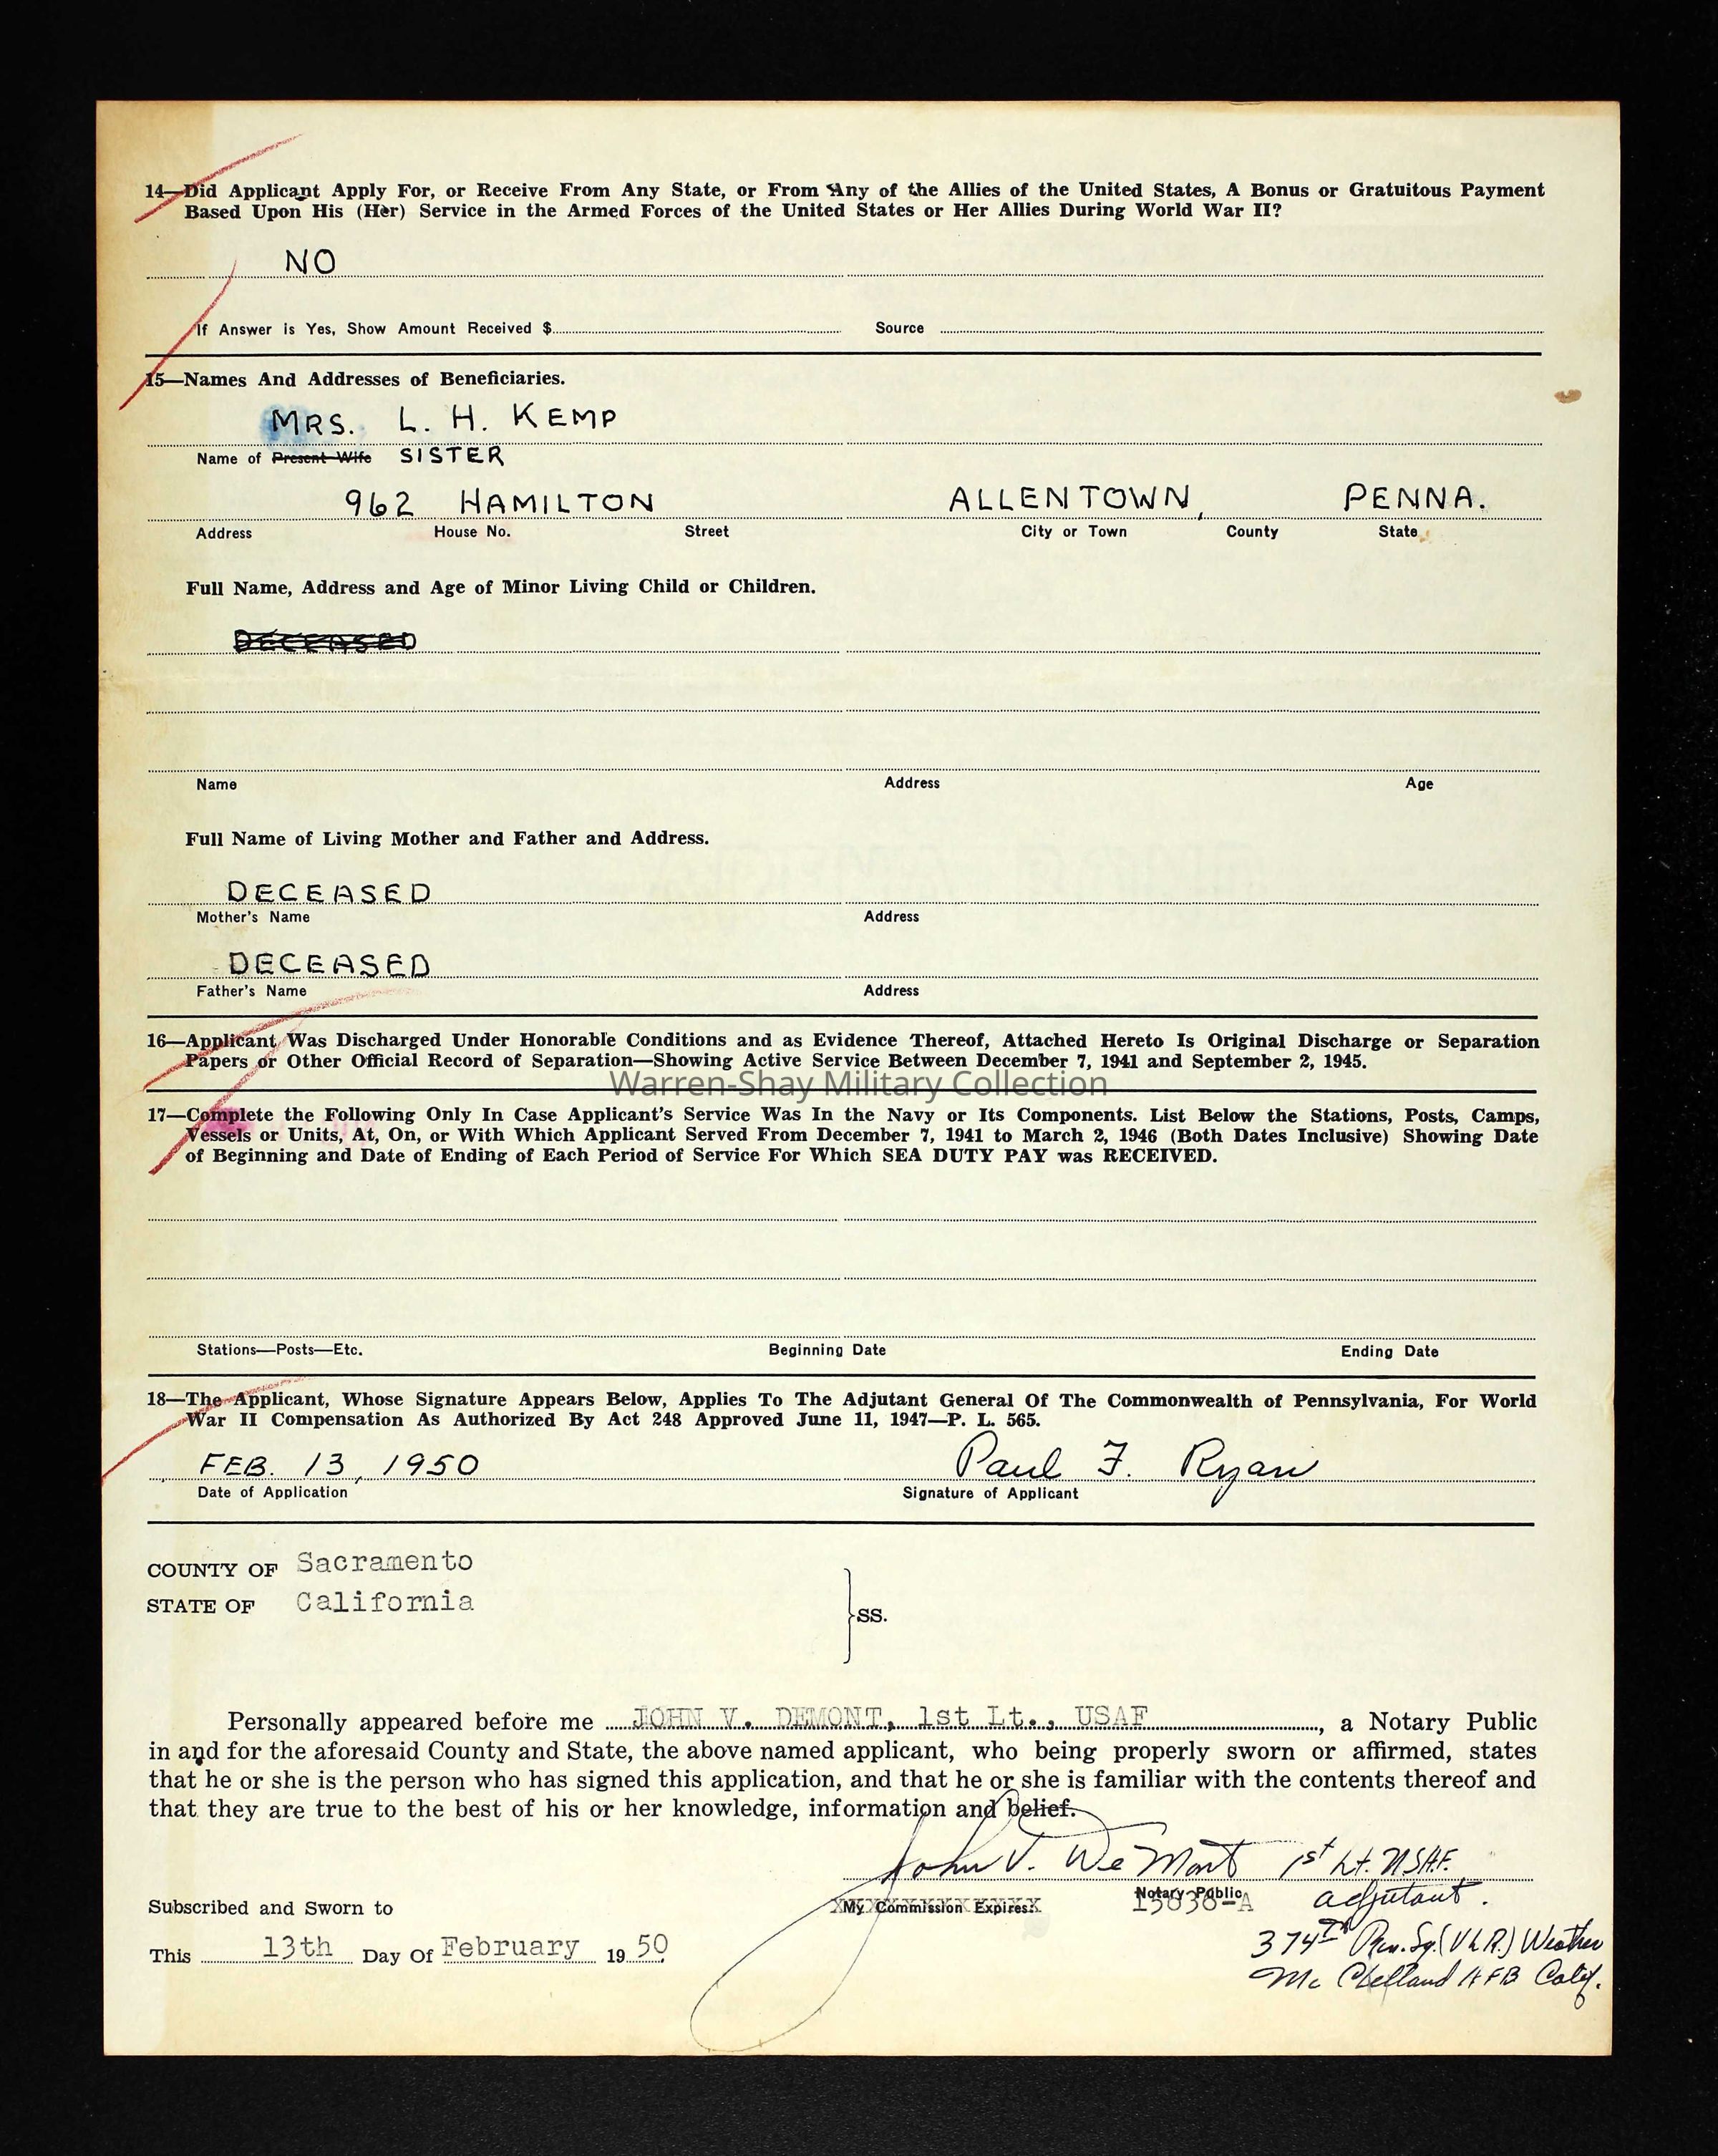 14—Did Applicant Apply For, or Receive From Any State, or From Any of the Allies of the United States, A Bonus or Gratuitous Payment
Based Upon His (Her) Service in the Armed Forces of the United States or Her Allies During World War II?
NO
If Answer is Yes, Show Amount Received $
Source
15—Names And Addresses of Beneficiaries.
MRS. L. H. KEMP
Name of Present Wife SISTER
962 HAMILTON ALLENTOWN, PENNA.
Address House No. Street City or Town County State
Full Name, Address and Age of Minor Living Child or Children.
DECEASED
Name Address Age
Full Name of Living Mother and Father and Address.
DECEASED
Mother's Name Address
DECEASED
Father's Name Address
16—Applicant Was Discharged Under Honorable Conditions and as Evidence Thereof, Attached Hereto Is Original Discharge or Separation
Papers or Other Official Record of Separation—Showing Active Service Between December 7, 1941 and September 2, 1945.
Warren-Shay Military Collection
17—Complete the Following Only In Case Applicant's Service Was In the Navy or Its Components. List Below the Stations, Posts, Camps,
Vessels or Units, At, On, or With Which Applicant Served From December 7, 1941 to March 2, 1946 (Both Dates Inclusive) Showing Date
of Beginning and Date of Ending of Each Period of Service For Which SEA DUTY PAY was RECEIVED.
Stations—Posts—Etc. Beginning Date Ending Date
18—The Applicant, Whose Signature Appears Below, Applies To The Adjutant General Of The Commonwealth of Pennsylvania, For World
War II Compensation As Authorized By Act 248 Approved June 11, 1947—P. L. 565.
FEB. 13, 1950 Paul F. Ryan
Date of Application Signature of Applicant
COUNTY OF Sacramento
STATE OF California
SS.
Personally appeared before me JOHN V. DEMONT, 1st Lt., USAF, a Notary Public
in and for the aforesaid County and State, the above named applicant, who being properly sworn or affirmed, states
that he or she is the person who has signed this application, and that he or she is familiar with the contents thereof and
that they are true to the best of his or her knowledge, information and belief.
John V. DeMont 1st Lt. USAF.
Notary Public
Subscribed and Sworn to My Commission Expires: 13838-A adjutant.
This 13th Day Of February 19 50
374th Rcn. Sq. (VLR) Weather
McClelland AFB Calif.